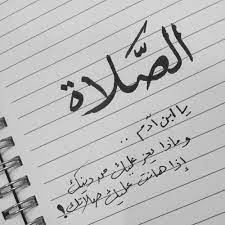 الصَّلاة
يا ابن آدم ..
وماذا يعز عليك من دينك
إذا هانت عليك صلاتك؟